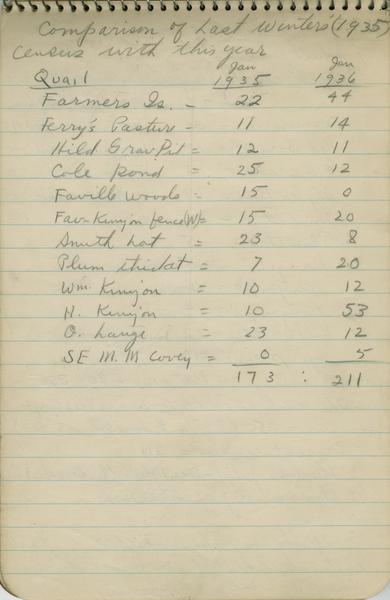 Comparison of Last Winters' (1935)
Census with this year
Jan Jan
Quail 1935 1936
Farmers Is. - 22 44
Ferry's Pasture - 11 14
Hild Grav Pit = 12 11
Cole pond = 25 12
Faville woods = 15 0
Fav-Kinyon fence (W) = 15 20
Smith lot = 23 8
Plum thicket = 7 20
Wm. Kinyon = 10 12
H. Kinyon = 10 53
O. Lange = 23 12
SE M.M Covey = 0 5
173 : 211